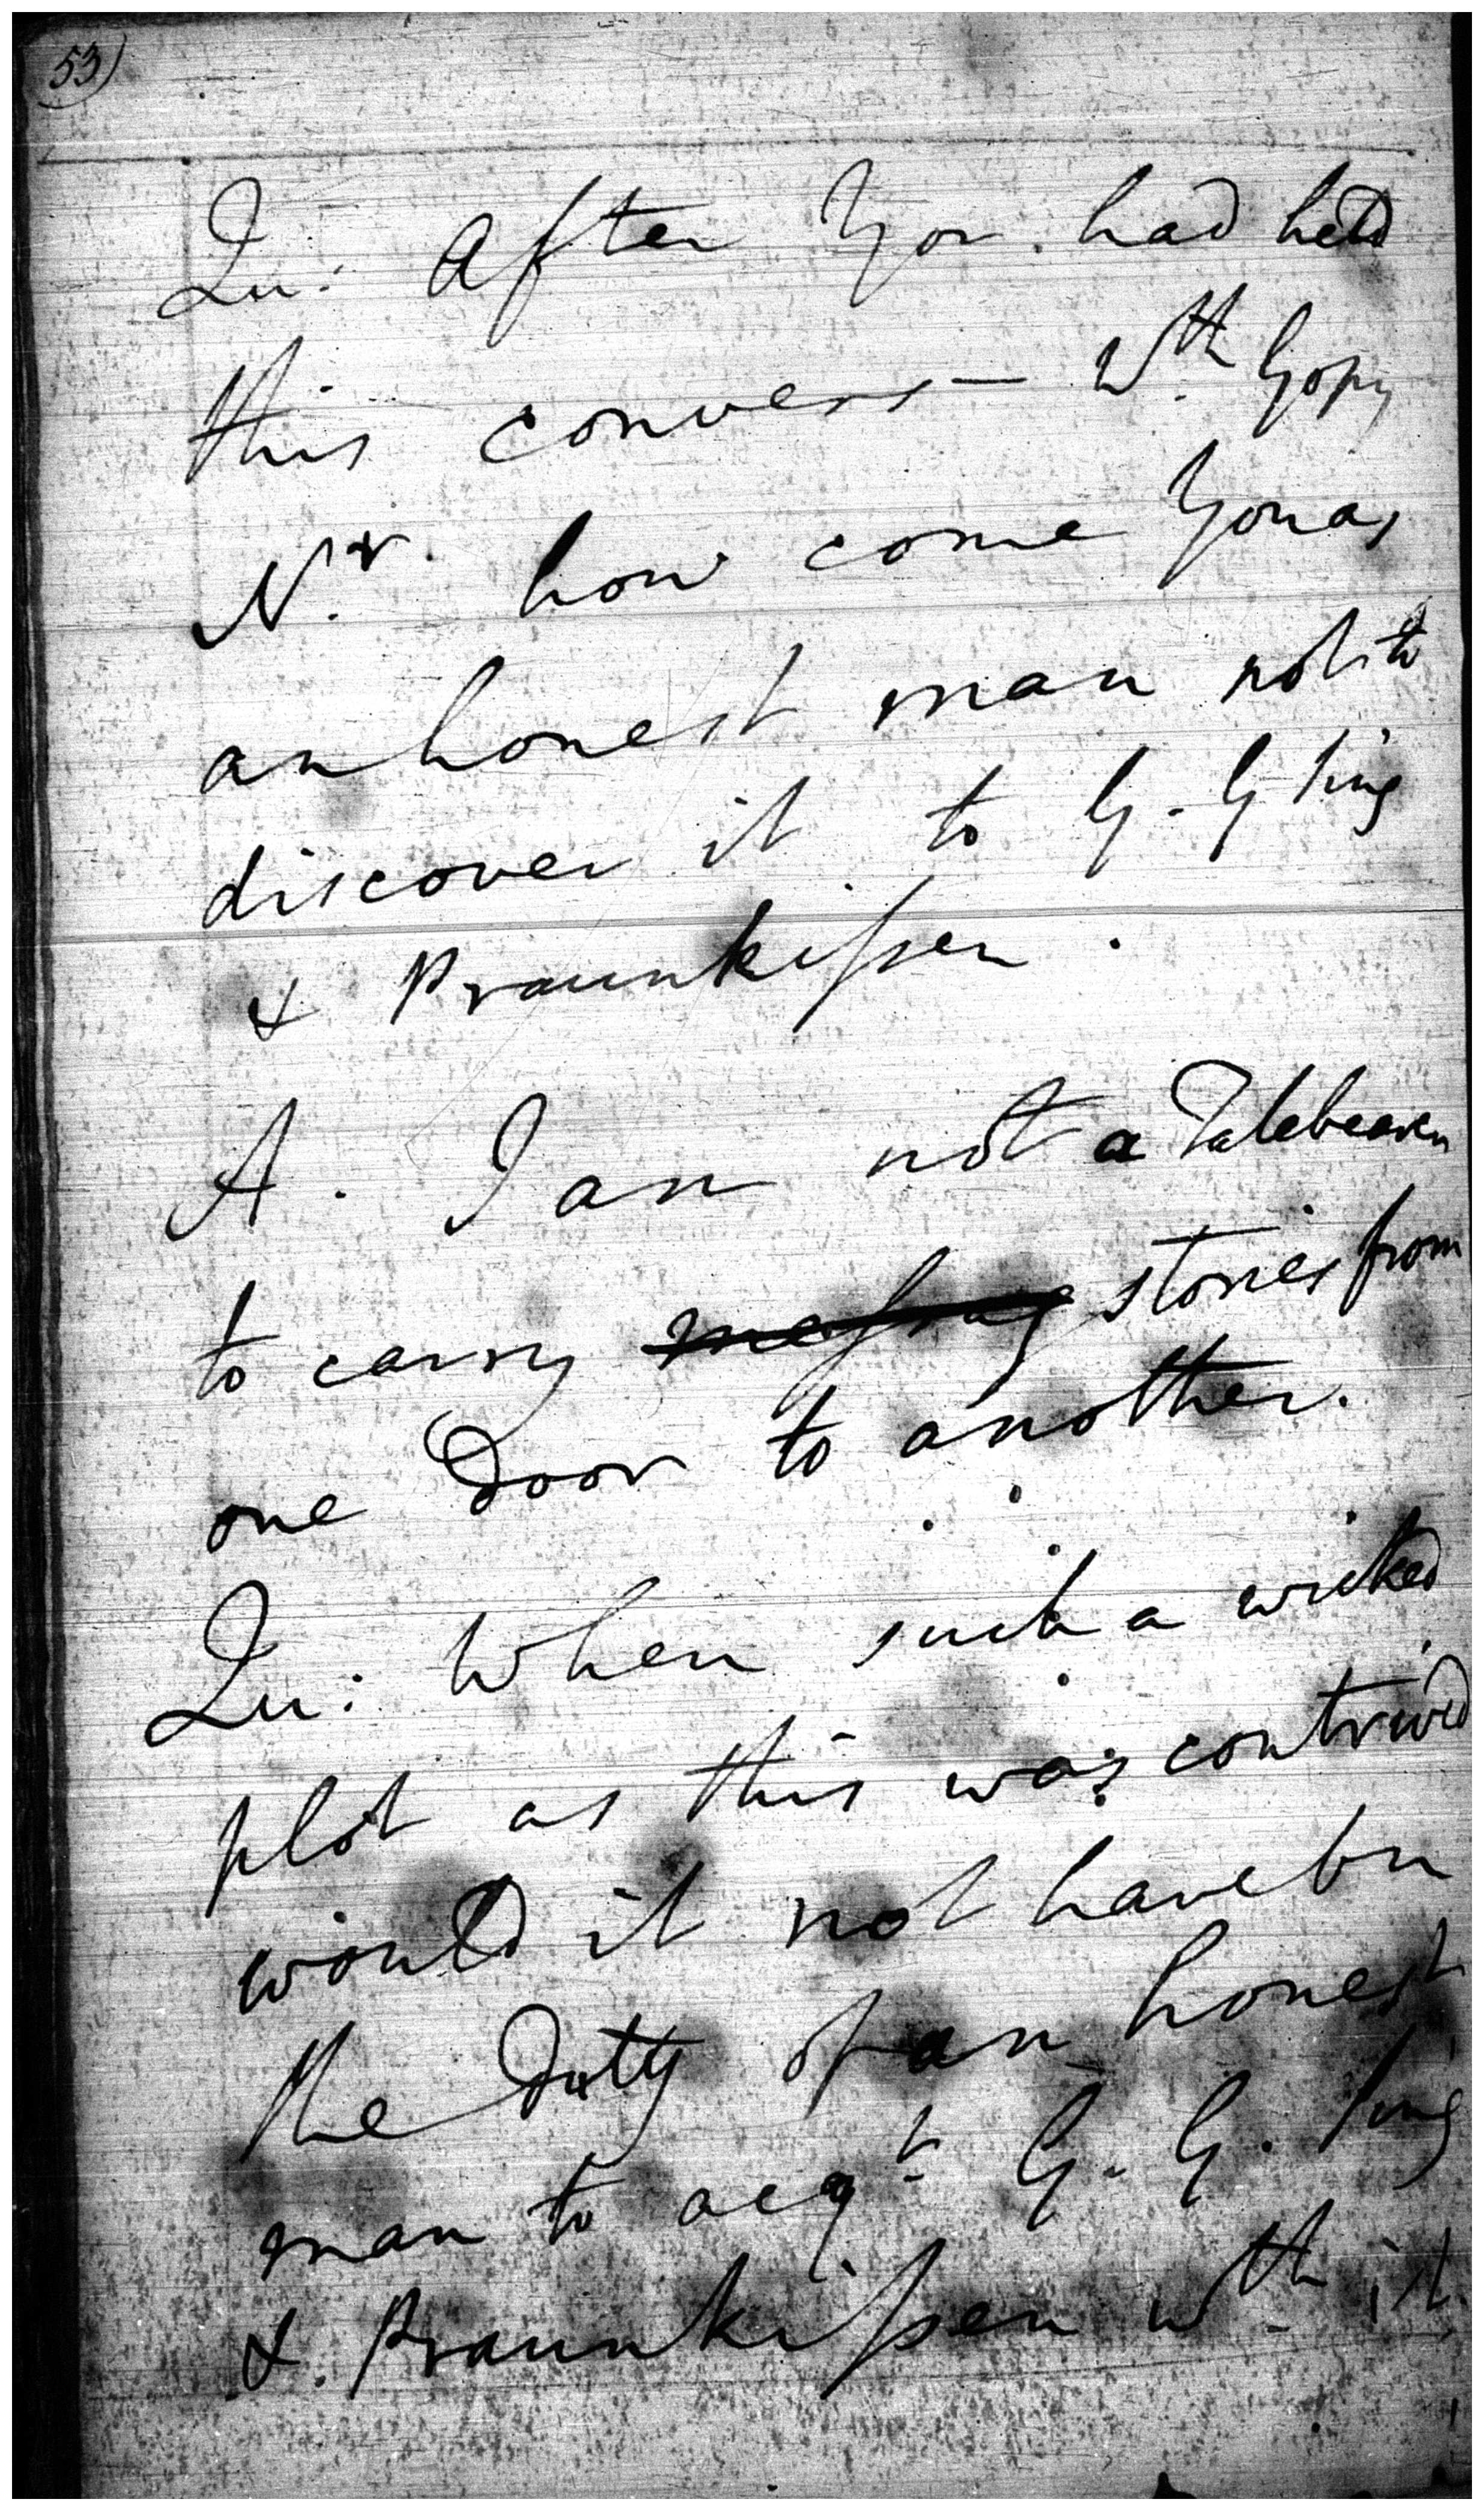 53)
Qu: After You had held
this convers— Wth Gopy
Nr. how come You as
an honest man not to
discover it to G. G Sing
& Praunkissen.
A. I am not a Talebearer
to carry messag stories from
one Door to another.
Qu: When such a wicked
plot as this was contriv'd
would it not have bn
the Duty of an honest
man to acqt. G. G. Sing
& Praunkissen wth it.